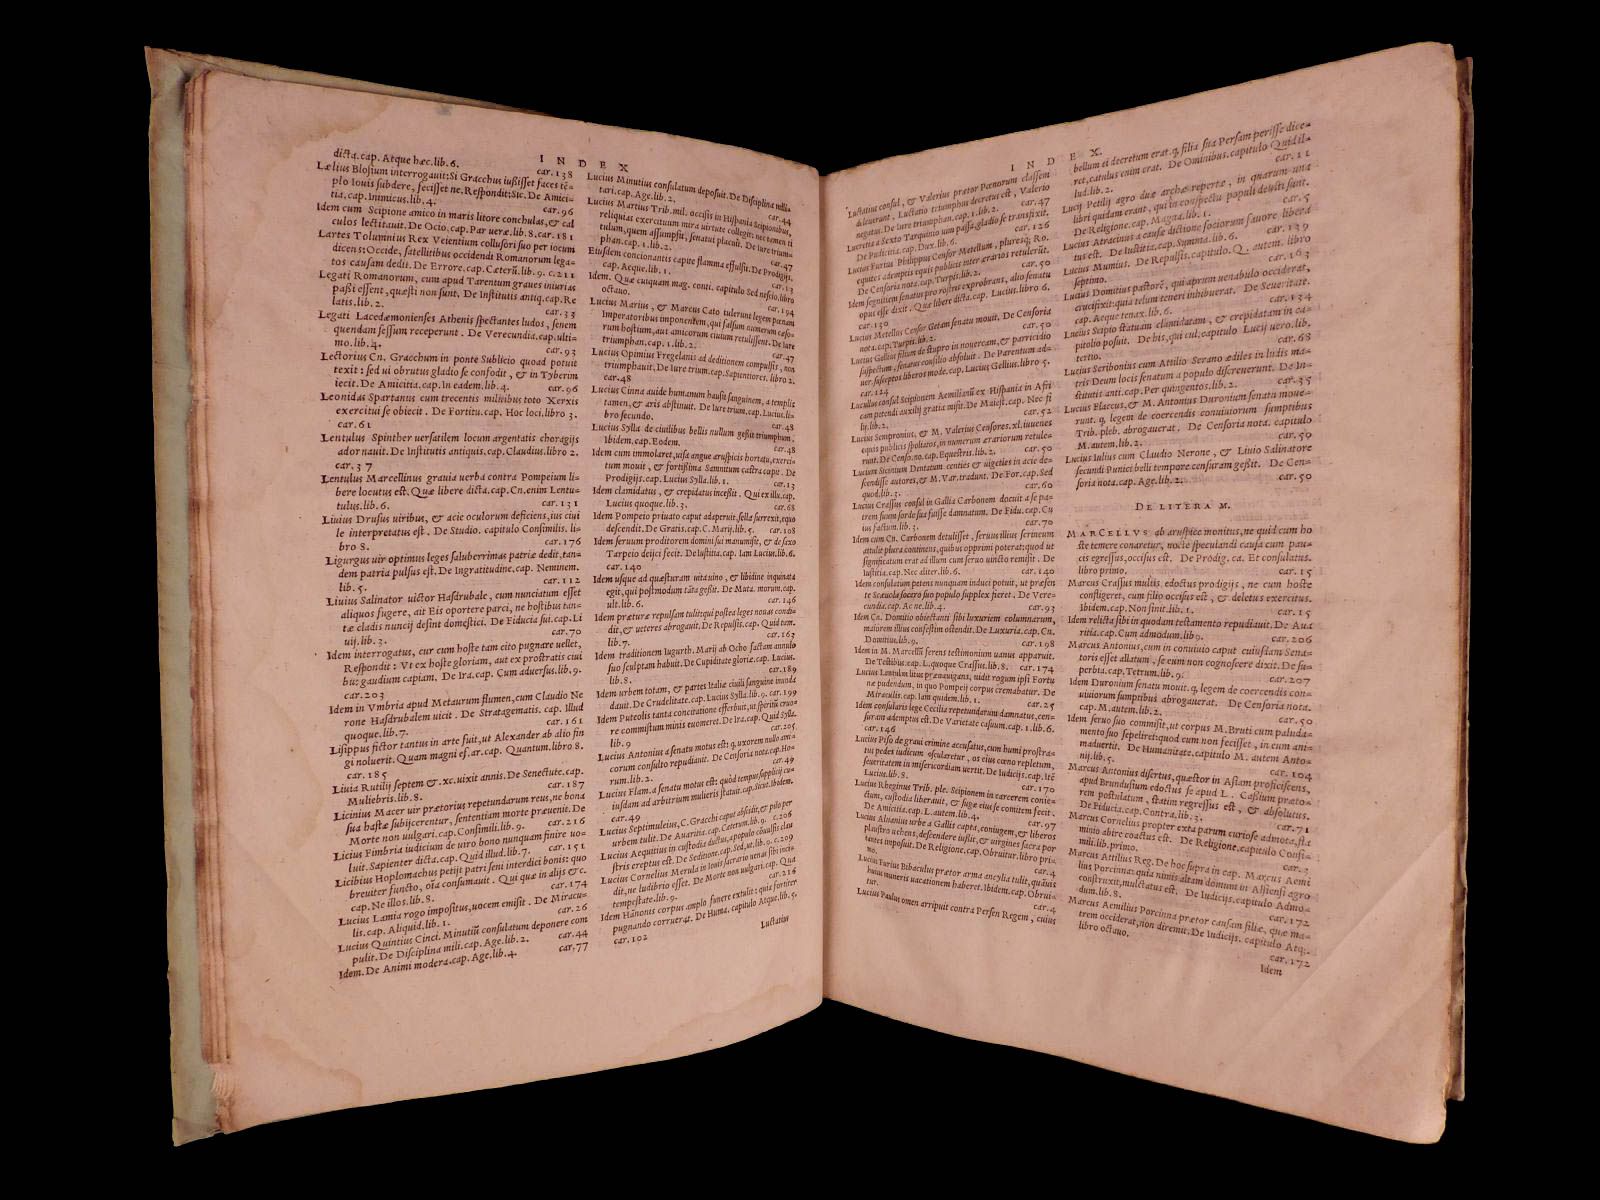 INDEX
dicta.cap. Atque hæc.lib.6. car.138
Lælius Blosium interrogauit:Si Gracchus iußisset faces tẽ-
plo Iouis subdere, fecisset ne. Respondit:Sic. De Amici-
tia.cap.Inimicus.lib.4. car.96
Idem cum Scipione amico in maris litore conchulas,& cal
culos lectitauit. De Ocio.cap.Par ueræ.lib.8.car.181
Lartes Tolumnius Rex Veientium collusori suo per iocum
dicens:Occide, satellitibus occidendi Romanorum lega-
tos causam dedit. De Errore.cap.Cæterũ.lib.9. c.211
Legati Romanorum, cum apud Tarentum graues iniurias
paßi essent,quæsti non sunt. De Institutis antiq.cap.Re
latis.lib.2. car.33
Legati Lacedæmonienses Athenis spectantes ludos, senem
quendam sessum receperunt. De Verecundia.cap.ulti-
mo.lib.4. car.93
Lectorius Cn. Gracchum in ponte Sublicio quoad potuit
texit: sed ui obrutus gladio se confodit, & in Tyberim
iecit. De Amicitia.cap.In eadem.lib.4. car.96
Leonidas Spartanus cum trecentis militibus toto Xerxis
exercitui se obiecit. De Fortitu.cap. Hoc loci.libro 3.
car.61
Lentulus Spinther uersatilem locum argentatis choragijs
adornauit. De Institutis antiquis.cap.Claudius.libro 2.
car.37
Lentulus Marcellinus grauia uerba contra Pompeium li-
bere locutus est. Quæ libere dicta.cap.Cn.enim Lentu-
tulus.lib.6. car.131
Liuius Drusus uiribus, & acie oculorum deficiens,ius ciui
le interpretatus est. De Studio. capitulo Consimilis. li-
bro 8. car.176
Ligurgus uir optimus leges saluberrimas patriæ dedit,tan-
dem patria pulsus est. De Ingratitudine.cap. Neminem.
lib.5. car.112
Liuius Salinator uictor Hasdrubale, cum nunciatum esset
aliquos fugere, ait Eis oportere parci, ne hostibus tan-
tæ cladis nuncij desint domestici. De Fiducia sui.cap.Li
uij.lib.3. car.70
Idem interrogatus, cur cum hoste tam cito pugnare uellet,
Respondit: Vt ex hoste gloriam, aut ex prostratis ciui
bus gaudium capiam. De Ira.cap. Cum aduersus.lib.9.
car.203
Idem in Vmbria apud Metaurum flumen,cum Claudio Ne
rone Hasdrubalem uicit. De Stratagematis. cap. Illud
quoque.lib.7. car.161
Lisippus fictor tantus in arte fuit,ut Alexander ab alio fin
gi noluerit.Quam magni ef.ar.cap. Quantum.libro 8.
car.185
Liuia Rutilij septem & .xc.uixit annis.De Senectute.cap.
Muliebris.lib.8. car.187
Licinius Macer uir prætorius repetundarum reus,ne bona
sua hastæ subijcerentur, sententiam morte præuenit.De
Morte non uulgari.cap.Consimili.lib.9. car.216
Licius Fimbria iudicium de uiro bono nunquam finire uo-
luit. Sapienter dicta.cap. Quid illud.lib.7. car.151
Licibius Hoplomachus petijt patri seni interdici bonis: quo
breuiter functo, oĩa consumauit. Qui quæ in alijs &c.
cap.Ne illos.lib.8. car.174
Lucius Lamia rogo impositus,uocem emisit. De Miracu-
lis.cap. Aliquid.lib.1. car.26
Lucius Quintius Cinci. Minutiũ consulatum deponere com
pulit. De Disciplina mili.cap. Age.lib.2. car.44
Idem. De Animi modera.cap. Age.lib.4. car.77
Lucius Minutius consulatum deposuit.De Disciplina mili-
tari.cap.Age.lib.2. car.44
Lucius Martius Trib.mil.occisis in Hispania Scipionibus,
reliquias exercituum mira uirtute collegit: nec tamen ti
tulum,quem assumpsit,senatus placuit. De Iure trium-
phan.cap.1.lib.2. car.47
Eiusdem concionantis capite flamma effulsit.De Prodigijs.
cap.Acque.lib.1. car.13
Idem. Quæ cuiquam mag. conti. capitulo Sed nescio.libro
octauo. car.194
Lucius Marius, & Marcus Cato tulerunt legem pœnam
Imperatoribus imponentem,qui falsum numerum cæso-
rum hostium,aut amicorum ciuium retulissent.De Iure
triumphan.cap.1.lib.2. car.47
Lucius Opimius Fregelanis ad deditionem compulsis, non
triumphauit.De Iure trium.cap.Sapientiores. libro 2.
car.48
Lucius Cinna auide humanum hausit sanguinem, a templis
tamen,& aris abstinuit. De Iure trium.cap.Lucius.li-
bro secundo. car.48
Lucius Sylla de ciuilibus bellis nullum geßit triumphum.
Ibidem.cap.Eodem. car.48
Idem cum immolaret,uisa angue aruspicis hortatu,exerci-
tum mouit, & fortißima Samnitum castra cæpit. De
Prodigijs.cap.Lucius Sylla.lib.1. car.13
Idem clamidatus, & crepidatus inceßit. Qui ex illu.cap.
Lucius quoque.lib.3. car.68
Idem Pompeio priuato caput adaperuit,sella surrexit,equo
descendit.De Gratis.cap.C.Marij.lib.5. car.108
Idem seruum proditorem domini sui manumisit, & de saxo
Tarpeio deijci fecit. De Iustitia.cap. Iam Lucius.lib.6.
car.140
Idem usque ad quæsturam uita uino, & libidine inquinata
egit,qui postmodum tãta geßit. De Muta. morum.cap.
ult.lib.6. car.146
Idem præturæ repulsam tulit:qui postea leges nouas condi-
dit,& ueteres abrogauit.De Repulsis.cap. Quid tem.
lib.7. car.163
Idem traditionem Iugurth. Marij ab Ocho factam annulo
suo sculptam habuit. De Cupiditate gloriæ.cap. Lucius.
lib.8. car.189
Idem urbem totam, & partes Italiæ ciuili sanguine inunda
dauit. De Crudelitate.cap.Lucius Sylla.lib.9. car.199
Idem Puteolis tanta concitatione efferbuit,ut spiritũ cruo-
re commistum minis euomeret. De Ira.cap.Quid Sylla.
lib.9 car.205
Lucius Antonius a senatu motus est: q. uxorem nullo ami-
corum consulto repudiauit. De Censoria nota.cap.Ho-
rum.lib.2. car.49
Lucius Flam.a senatu motus est: quòd tempus supplicij cu-
iusdam ad arbitrium mulieris statuit.cap.Sicut.Ibidem.
car.49
Lucius Septimuleius,C.Gracchi caput absсidit,& pilo per
urbem tulit. De Auaritia.cap.Cæterum.lib.9. c.206
Lucius Aequitius in custodia ductus,a populo cõuulsis clau
stris ereptus est. De Seditione.cap.Sed,ut.lib.9. c.209
Lucius Cornelius Merula in Iouis sacrario uenas sibi incis
dit,ne ludibrio esset. De Morte non uulgari.cap. Qua
tempestate.lib.9. car.216
Idem Hannonis corpus amplo funere extulit: quia fortiter
pugnando corruerat. De Huma. capitulo Atque.lib.5.
car.102
Luctatius
INDEX.
Luctatius consul, & Valerius prætor Pœnorum classem
deleuerunt. Luctatio triumphus decretus est, Valerio
negatus. De Iure triumphan.cap.1.lib.2. car.47
Lucretia a Sexto Tarquinio uim passa,gladio se transfixit.
De Pudicitia.cap.Dux.lib.6. car.126
Lucius Furius Philippus Censor Metellum, pluresq; Ro.
equites ademptis equis publicis inter ærarios retulerũt.
De Censoria nota.cap.Turpis.lib.2. car.50
Idem segnitiem senatui pro rostris exprobrans, alio senatu
opus esse dixit. Quæ libere dicta.cap. Lucius.libro 6.
car.130
Lucius Metellus Censor Getam senatu mouit. De Censoria
nota.cap.Turpis.lib.2. car.50
Lucius Gellius filium de stupro in nouercam,& parricidio
suspectum, senatus consilio absoluit. De Parentum ad-
uer.suspectos liberos mode.cap.Lucius Gellius.libro 5.
car.124
Lucullus consul Scipionem Aemilianũ ex Hispania in Afri
cam petendi auxilij gratia misit.De Maiest.cap. Nec fi
lij.lib.2. car.52
Lucius Sempronius, & M. Valerius Censores.xl.iuuenes
equis publicis spoliatos,in numerum ærariorum retule-
runt.De Censo.no.cap.Equestris.lib.2. car.50
Lucius Sicinium Dentatum centies & uigeties in acie de-
scendisse autores,& M. Var.tradunt. De For.cap.Sed
quod.lib.3. car.60
Lucius Crassus consul in Gallia Carbonem docuit a se pa-
trem suum sorde sua fuisse damnatum. De Fidu.cap.Cu
ius factum.lib.3. car.70
Idem cum Cn. Carbonem detulisset, seruus illius scrineum
attulit plura continens,quibus opprimi poterat;quod ut
significatum erat ad illum cum seruo uincto remisit. De
Iustitia.cap.Nec aliter.lib.6. car.140
Idem consulatum petens nunquam induci potuit, ut præsen
te Scæuola socero suo populo supplex fieret. De Vere-
cundia.cap.Ac ne.lib.4. car.93
Idem Cn. Domitio obiectanti sibi luxuriem columnarum,
maiorem illius confestim ostendit. De Luxuria.cap.Cn.
Domitius.lib.9. car.198
Idem in M. Marcelliũ ferens testimonium uanus apparuit.
De Testibus.cap.L.quoque Crassus.lib.8. car.174
Lucius Lentulus litus prænauigans, uidit rogum ipsi Fortu
næ pudendum, in quo Pompeij corpus cremabatur. De
Miraculis.cap.Iam quidem.lib.1. car.25
Idem consularis lege Cecilia repetundarum damnatus,cen-
suram ademptus est.De Varietate casuum.cap.1.lib.6.
car.146
Lucius Piso de graui crimine accusatus,cum humi prostra-
tus pedes iudicum oscularetur, os eius cœno repletum,
seueritatem in misericordiam uertit. De Iudicijs.cap.Itẽ
Lucius.lib.8. car.170
Lucius Rheginus Trib. ple. Scipionem in carcerem conie-
ctum, custodia liberauit, & fugæ eius se comitem fecit.
De Amicitia.cap.L.autem.lib.4. car.97
Lucius Aluanius urbe a Gallis capta,coniugem,& liberos
plaustro uehens,descendere iußit,& uirgines sacra por
tantes imposuit.De Religione.cap.Obruitur.libro pri-
mo. car.4
Lucius Furius Bibaculus prætor arma ancylia tulit,quãuis
huius muneris uacationem haberet.Ibidem.cap.Obrui-
tur. car.4
Lucius Paulus omen arripuit contra Persen Regem, cuius
bellum ei decretum erat.q. filia sua Persam perisse dice-
ret,catulus enim erat. De Ominibus.capitulo Quid il-
lud.lib.2. car.11
Lucij Petilij agro duæ archæ repertæ, in quarum una
libri quidam erant, qui in conspectu populi deusti sunt.
De Religione.cap. Magna.lib.1. car.5
Lucius Atracinus a causæ dictione sociorum fauore libera
tus est. De Iustitia.cap.Summa.lib.6. car.139
Lucius Mumius. De Repulsis.capitulo.Q. autem. libro
septimo. car.163
Lucius Domitius pastorẽ, qui aprum uenabulo occiderat,
crucifixit:quia telum teneri inhibuerat. De Seueritate.
cap.Aeque tenax.lib.6. car.134
Lucius Scipio statuam clamidatam, & crepidatam in ca-
pitolio posuit. De his,qui cul.capitulo Lucij uero.lib.
tertio. car.68
Lucius Scribonius cum Attilio Serano ædiles in ludis ma-
tris Deum locis senatum a populo discreuerunt. De In-
stitutis anti.cap.Per quingentos.lib.2. car.35
Lucius Flaccus,& M.Antonius Duronium senatu moue-
runt. q. legem de coercendis conuiuiorum sumptibus
Trib. pleb. abrogauerat, De Censoria nota. capitulo
M.autem.lib.2. car.50
Lucius Iulius cum Claudio Nerone, & Liuio Salinatore
secundi Punici belli tempore censuram geßit. De Cen-
soria nota.cap.Age.lib.2. car.50
DE LITERA M.
MARCELLVS ab aruspice monitus,ne quid cum ho
ste temere conaretur, nocte speculandi causa cum pau-
cis egressus,occisus est. De Prodig.ca. Et consulatus.
libro primo. car.15
Marcus Crassus multis edoctus prodigijs, ne cum hoste
confligeret, cum filio occisus est, & deletus exercitus.
Ibidem.cap.Non sinit.lib.1. car.15
Idem relicta sibi in quodam testamento repudiauit. De Aua
ritia.cap.Cum admodum.lib 9. car.206
Marcus Antonius,cum in conuiuio caput cuiusdam Sena-
toris esset allatum, se eum non cognoscere dixit. De Su-
perbia.cap.Tetrum.lib.9. car.207
Idem Duronium senatu mouit.q. legem de coercendis con-
uiuiorum sumptibus abrogauerat. De Censoria nota.
cap.M.autem.lib.2. car.50
Idem seruo suo commisit,ut corpus M.Bruti cum paluda-
mento suo sepeliret:quod cum non fecisset, in eum ani-
maduertit. De Humanitate.capitulo M. autem Anto-
nij.lib.5. car.104
Marcus Antonius disertus,quæstor in Asiam proficiscens,
apud Brundusium edoctus se apud L. Caßium præto-
rem postulatum, statim regressus est, & absolutus.
De Fiducia.cap.Contra.lib.3. car.71
Marcus Cornelius propter exta parum curiose admota,fla
minio abire coactus est. De Religione.capitulo Consi-
mili.lib.primo. car.3
Marcus Attilius Reg. De hoc supra in cap. Marcus Aemi
lius Porcinna: quia nimis altam domum in Alsiensi agro
construxit,mulctatus est. De Iudicijs.capitulo Admo-
dum.lib.8. car.172
Marcus Aemilius Porcinna prætor causam filiæ, quæ ma-
trem occiderat,non diremit. De Iudicijs. capitulo Atq;.
libro octauo. car.172
Idem